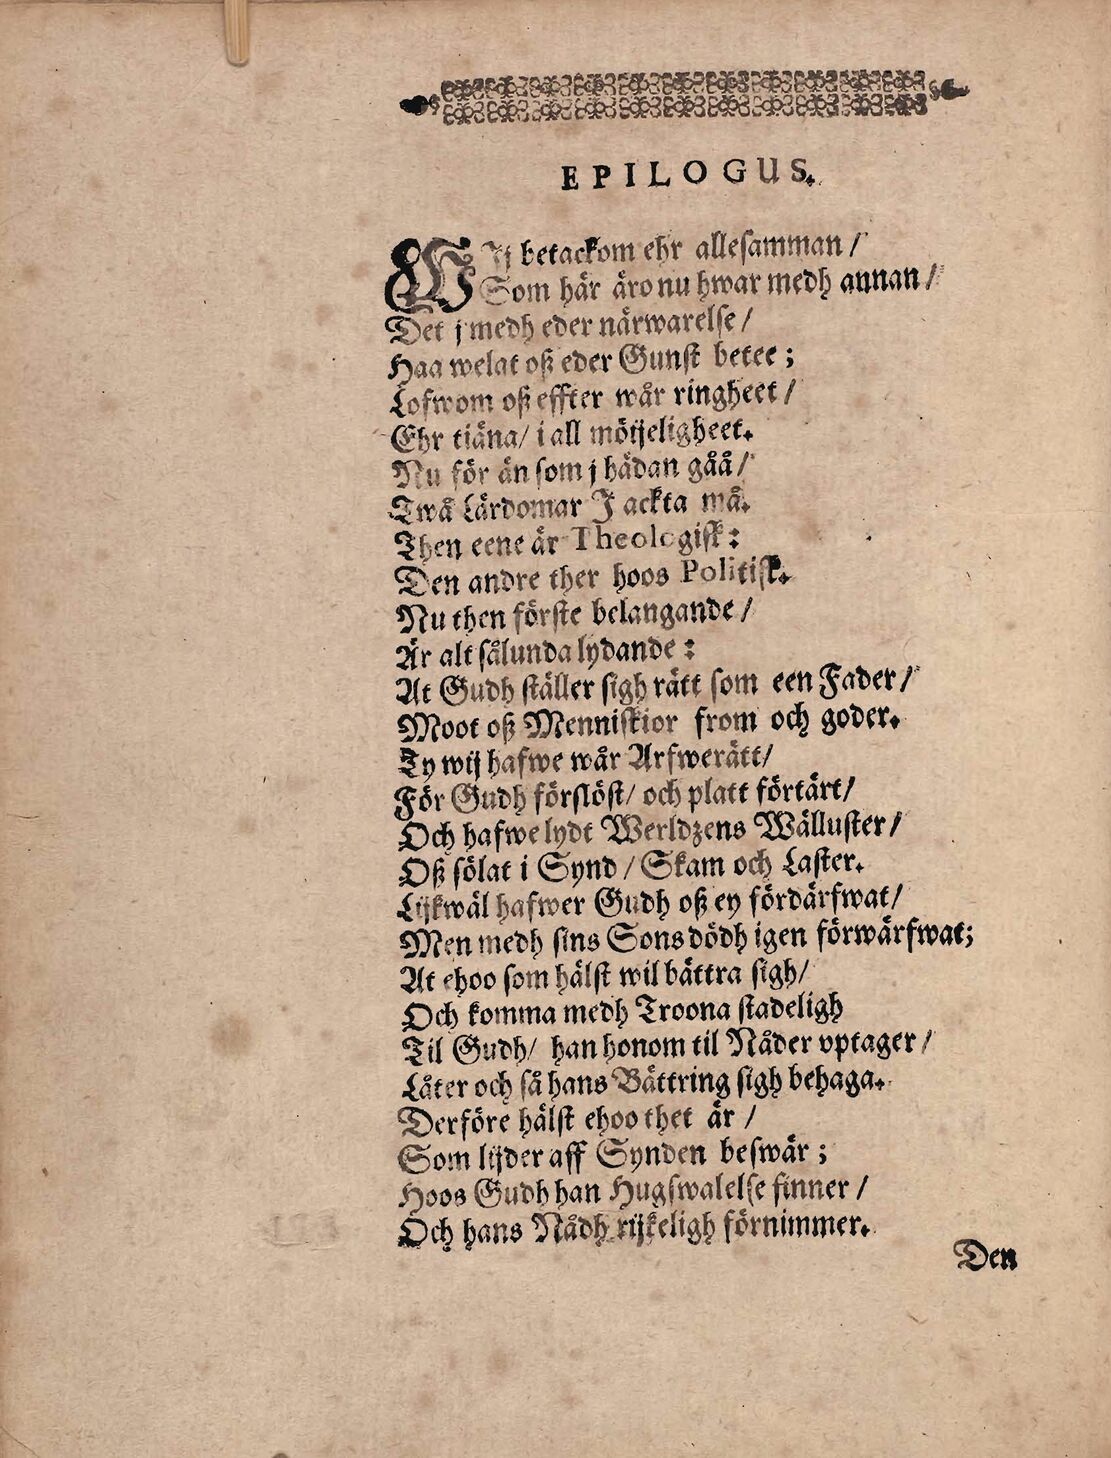 EPILOGUS.
WIj betackom ehr allesamman /
Som här äro nu hwar medh annan /
Det j medh eder närwarelse /
Haa welat oß eder Gunst betee ;
Lofwom oß effter wår ringheet /
Ehr tiäna / i all möijeligheet.
Nu för än som j hädan gåå /
Twå Lärdomar J ackta må.
Then eene är Theologisk :
Den andre ther hoos Politisk.
Nu then förste belangande /
Är alt sålunda lydande :
At Gudh ställer sigh rätt som een Fader /
Moot oß Menniskior from och goder.
Ty wij hafwe wår Arfwerätt /
För Gudh förslöst / och platt förtärt /
Och hafwe lydt Werldzens Wälluster /
Oß sölat i Synd / Skam och Laster.
Lijkwäl hafwer Gudh oß ey fördärfwat /
Men medh sins Sons dödh igen förwärfwat;
At ehoo som hälst wil bättra sigh /
Och komma medh Troona stadeligh
Til Gudh / han honom til Nåder vptager /
Låter och så hans Bättring sigh behaga.
Derföre hälst ehoo thet är /
Som lijder aff Synden beswär ;
Hoos Gudh han Hugswalelse finner /
Och hans Nådh rijkeligh förnimmer.
Den